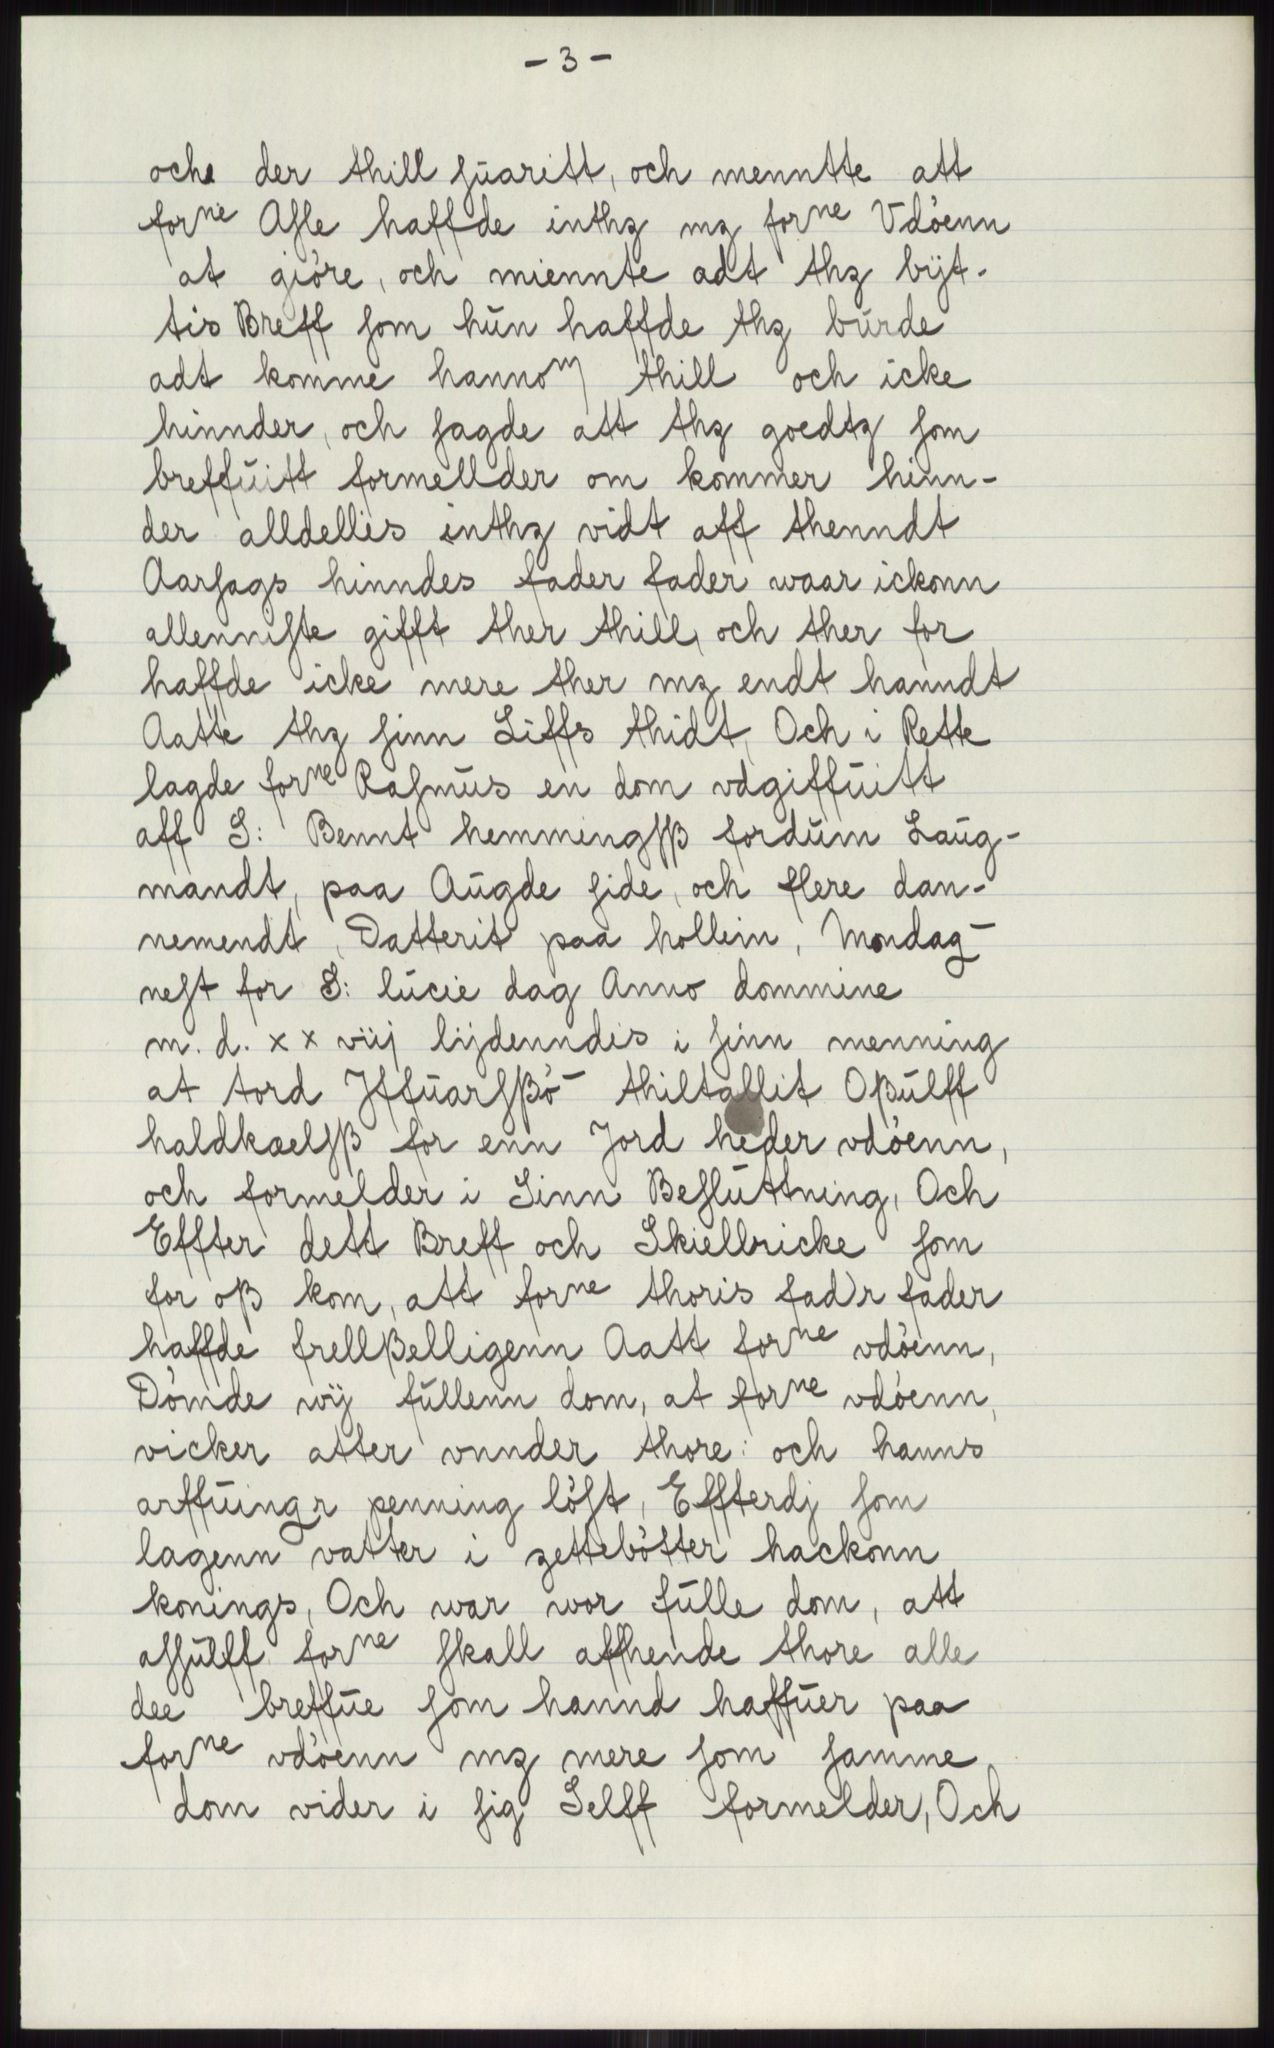 - 3 -
oche der thill ſuaritt, och menntte att
forne Aſle haffde inthz mz forne Vdöenn
at giöre, och miennte adt thz bÿt-
tis Breff ſom hŭn haffde thz bŭrde
adt komme hannom thill och icke
hinnder, och ſagde att thz goedtz ſom
breffŭitt formellder om kommer hinn-
der alldellis inthz vidt aff thenndt
Aarſags hinndes fader fader waar ickonn
allenniſte gifft ther thill, och ther for
haffde icke mere ther mz endt hanndt
Aatte thz ſinn Liffs thidt, Och i Rette
lagde forne Raſmŭs en dom vdgiffŭitt
aff S: Bennt hemmingſß fordŭm Laŭg-
mandt, paa Aŭgde ſide, och flere dan-
nemendt, Datterit paa hollein, Mondag
neſt for S: lŭcie dag Anno dommine
m. d. xx viij lijdenndis i ſinn menning
at tord Jffŭarſßö thiltallit Oßŭlff
haldkaelſß for enn Jord heder vdöenn,
och formelder i Sinn Beſlŭttning, Och
Effter dett Breff och Skiellricke ſom
for oß kom, att forne thoris fad)r fader
haffde frellßelligenn Aatt forne vdöenn,
Dömde wÿ fŭllenn dom, at forne vdöenn,
vicker atter vnnder thore: och hanns
arffŭingr penning löſt, Effterdj ſom
lagenn vatter i zettebötter hackonn
konings, Och war wor fŭlle dom, att
aſſŭlff forne ſkall affhende thore alle
dee breffŭe ſom hannd haffŭer paa
forne vdöenn mz mere ſom ſamme
dom vider i ſig Selff formelder, Och